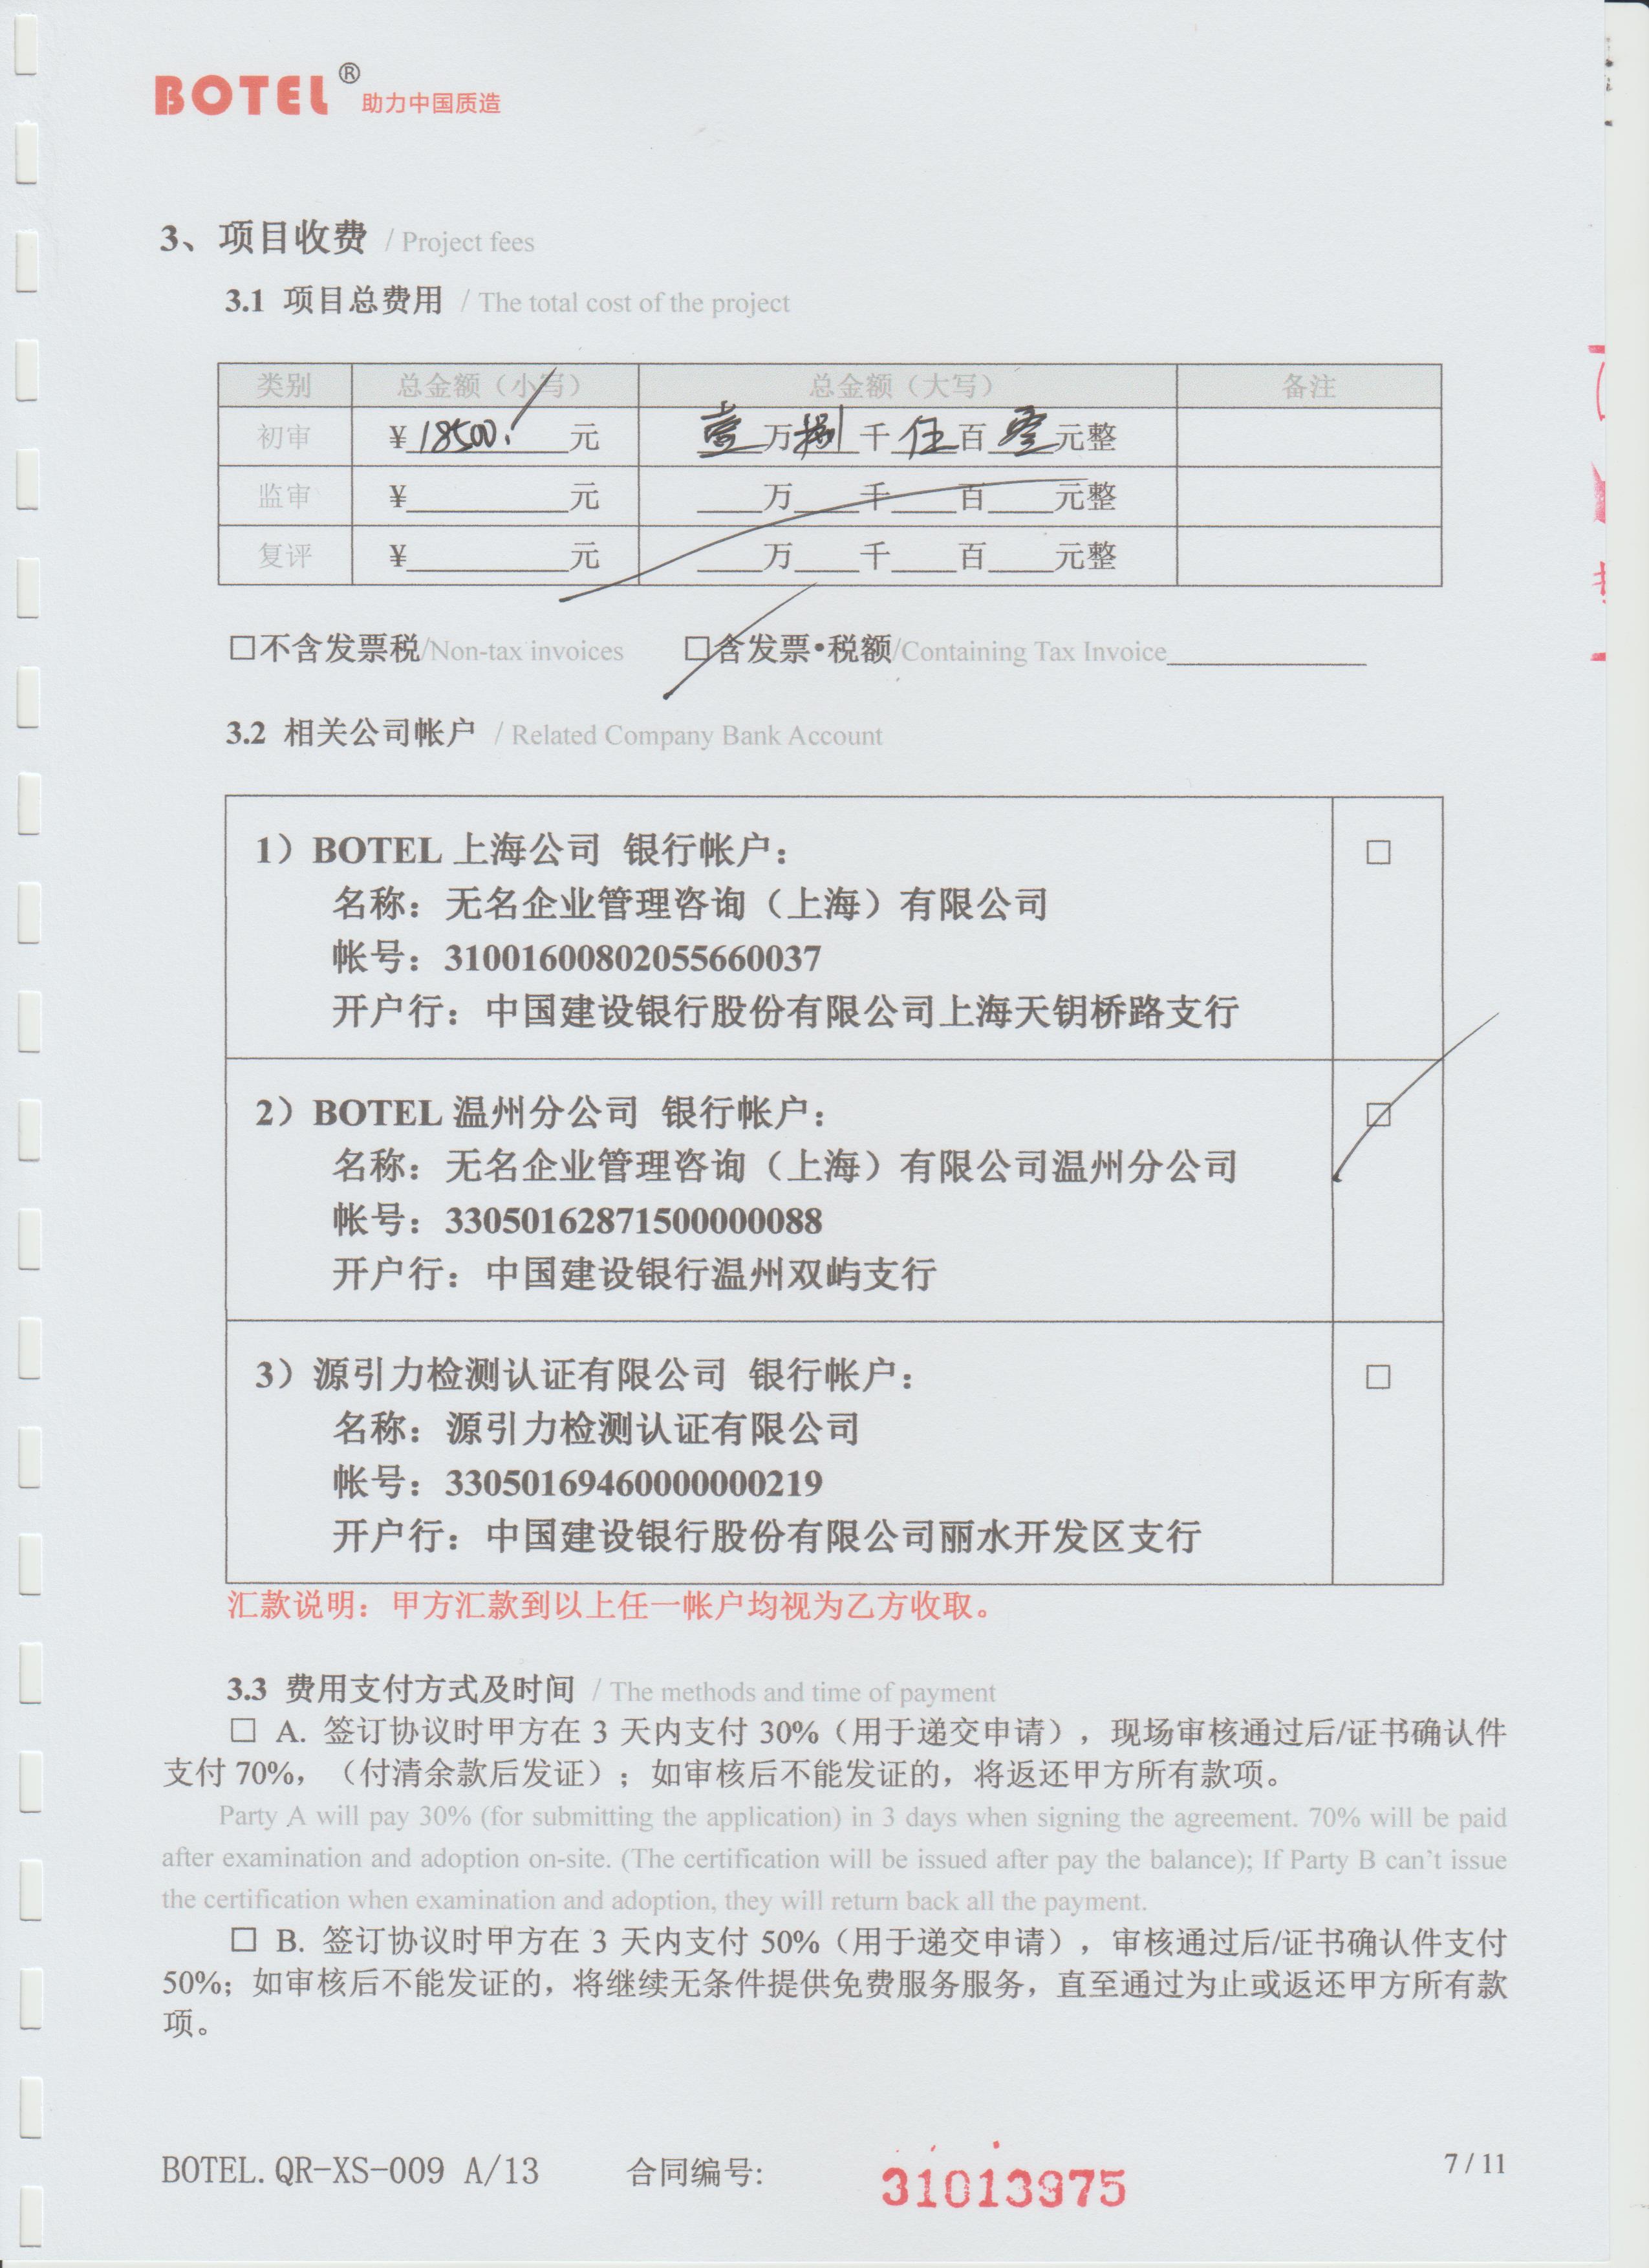 BOTEL® 助力中国质造
3、项目收费 / Project fees
3.1 项目总费用 / The total cost of the project
类别 总金额（小写） 总金额（大写） 备注
初审 ¥18500. 元 壹万捌千伍百零元整
监审 ¥__________元 ____万____千____百____元整
复评 ¥__________元 ____万____千____百____元整
□不含发票税/Non-tax invoices □含发票•税额/Containing Tax Invoice____________
3.2 相关公司帐户 / Related Company Bank Account
1）BOTEL 上海公司 银行帐户： □
名称：无名企业管理咨询（上海）有限公司
帐号：31001600802055660037
开户行：中国建设银行股份有限公司上海天钥桥路支行
2）BOTEL 温州分公司 银行帐户： □
名称：无名企业管理咨询（上海）有限公司温州分公司
帐号：33050162871500000088
开户行：中国建设银行温州双屿支行
3）源引力检测认证有限公司 银行帐户： □
名称：源引力检测认证有限公司
帐号：33050169460000000219
开户行：中国建设银行股份有限公司丽水开发区支行
汇款说明：甲方汇款到以上任一帐户均视为乙方收取。
3.3 费用支付方式及时间 / The methods and time of payment
□ A. 签订协议时甲方在 3 天内支付 30%（用于递交申请），现场审核通过后/证书确认件
支付 70%，（付清余款后发证）；如审核后不能发证的，将返还甲方所有款项。
Party A will pay 30% (for submitting the application) in 3 days when signing the agreement. 70% will be paid
after examination and adoption on-site. (The certification will be issued after pay the balance); If Party B can't issue
the certification when examination and adoption, they will return back all the payment.
□ B. 签订协议时甲方在 3 天内支付 50%（用于递交申请），审核通过后/证书确认件支付
50%；如审核后不能发证的，将继续无条件提供免费服务服务，直至通过为止或返还甲方所有款
项。
BOTEL.QR-XS-009 A/13 合同编号: 31013975 7 / 11